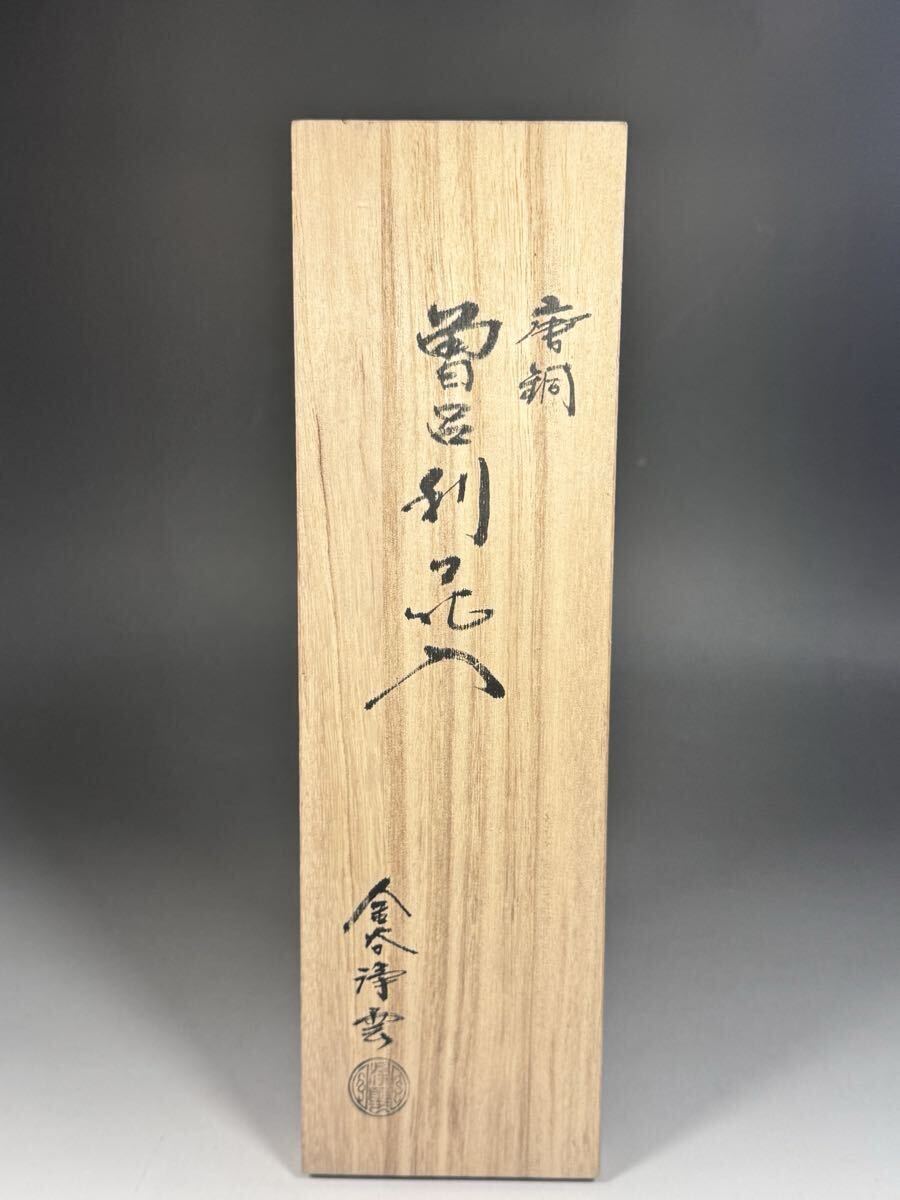 唐銅
曽呂利花入
金谷浄雲